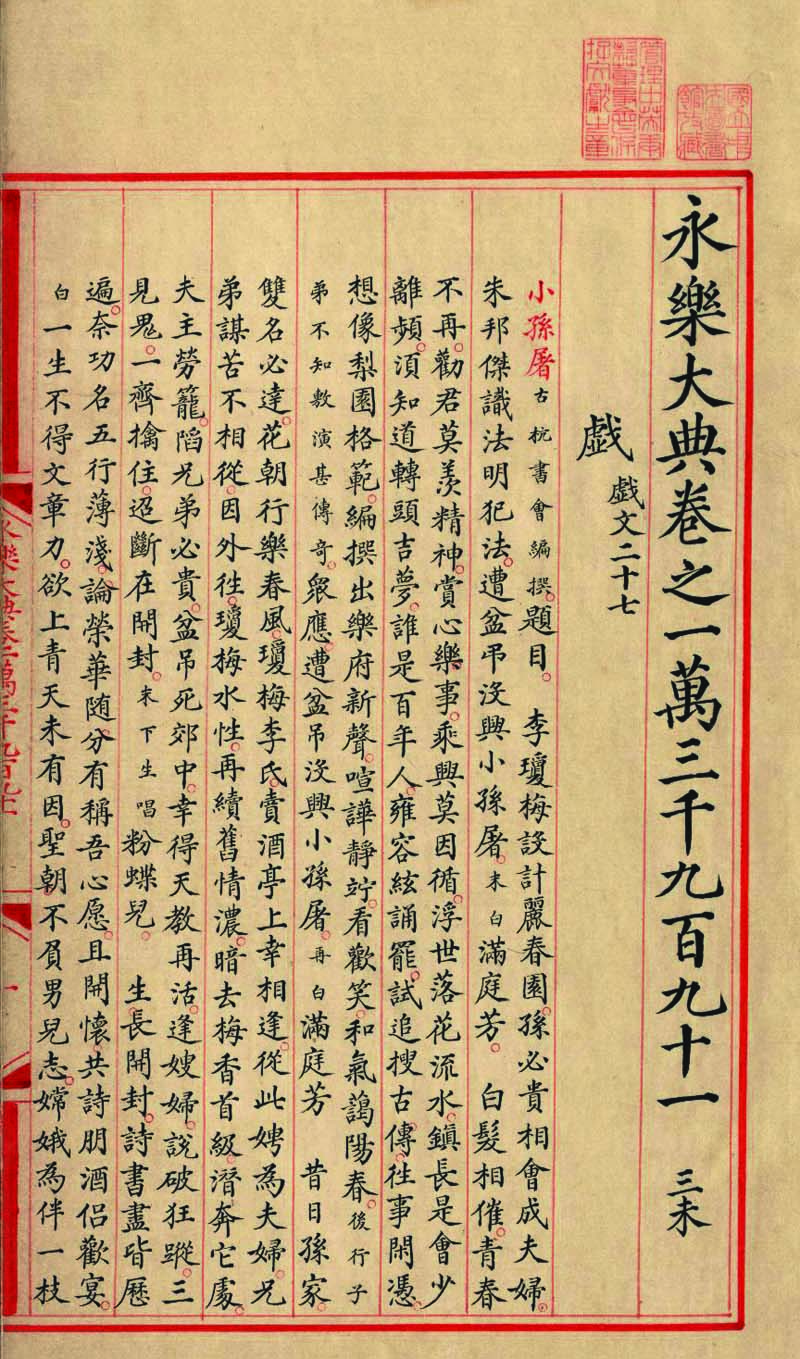 永樂大典卷之一萬三千九百九十一 三未
戲 戲文二十七
小孫屠 古杭書會編撰。題目。 李瓊梅設計麗春園。孫必貴相會成夫婦。
朱邦傑識法明犯法。遭盆弔沒興小孫屠。末白 滿庭芳。 白髮相催。青春
不再。勸君莫羨精神。賞心樂事。乘興莫因循。浮世落花流水。鎮長是會少
離頻。須知道轉頭吉夢。誰是百年人。雍容絃誦罷。試追搜古傳。往事閑憑。
想像梨園格範。編撰出樂府新聲。喧譁靜竚。看歡笑。和氣藹陽春。後行子
弟不知敷演甚傳奇。眾應。遭盆吊沒興小孫屠。再白 滿庭芳 昔日孫家。
雙名必達。花朝行樂春風。瓊梅李氏。賣酒亭上幸相逢。從此娉為夫婦。兄
弟謀苦不相從。因外往。瓊梅水性。再續舊情濃。暗去梅香首級。潛奔它處。
夫主勞籠。陷兄弟必貴。盆吊死郊中。幸得天教再活。逢嫂婦。說破狂蹤。三
見鬼。一齊擒住。迢斷在開封。末下生唱 粉蝶兒。 生長開封。詩書盡皆歷
遍。奈功名五行薄淺。論榮華隨分有稱吾心愿。且開懷。共詩朋酒侶歡宴。
白 一生不得文章力。欲上青天未有因。聖朝不負男兒志。嫦娥為伴一枝